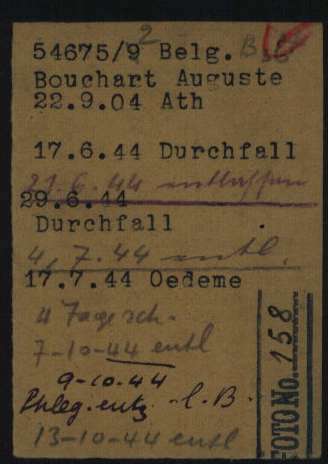 54675/9 2 Belg.
Bouchart Auguste
22.9.04 Ath
17.6.44 Durchfall
21.6.44 entlassen
29.6.44
Durchfall
4.7.44 entl.
17.7.44 Oedeme
4 Tage sch.
7-10-44 entl
9-10.44
Phleg. entz. l. B.
13-10-44 entl
FOTO No. 158